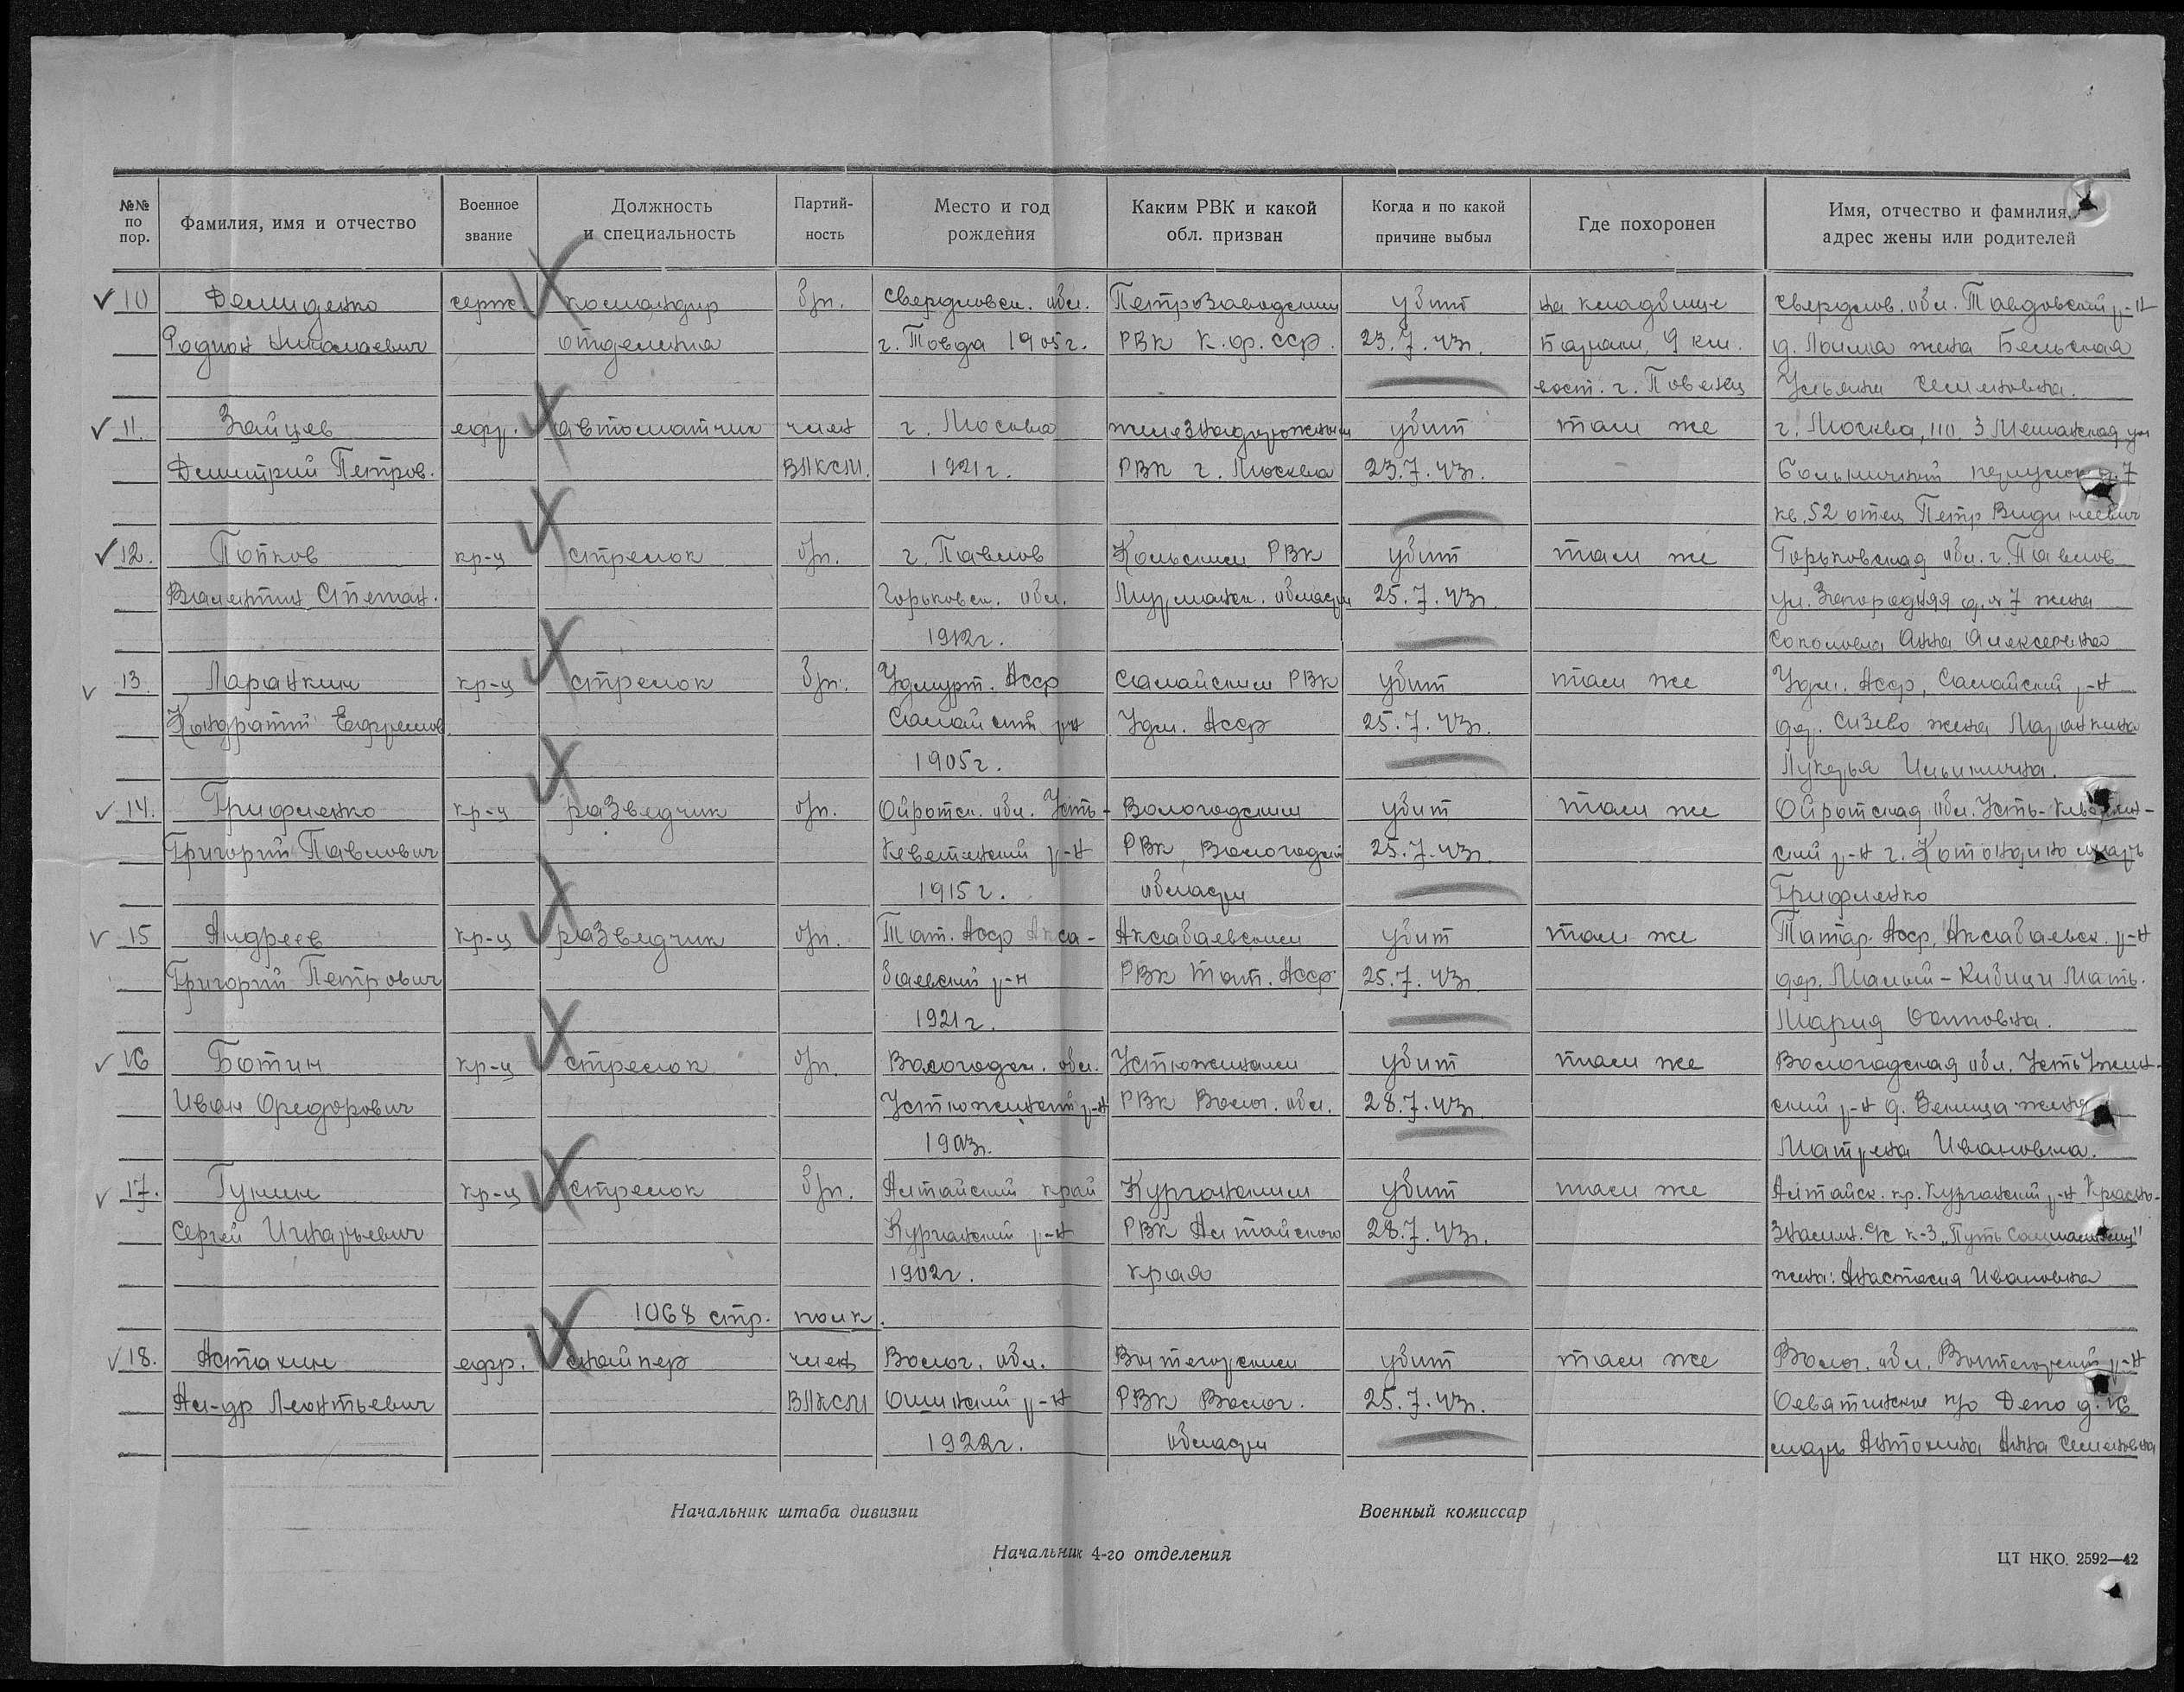 №№ по пор. | Фамилия, имя и отчество | Военное звание | Должность и специальность | Партий-ность | Место и год рождения | Каким РВК и какой обл. призван | Когда и по какой причине выбыл | Где похоронен | Имя, отчество и фамилия, адрес жены или родителей
10 Демиденко серж командир б/п. Свердловск. обл. Петрозаводским убит на кладбище Свердлов. обл. Тавдовский р-н
Родион Николаевич отделения г. Товда 1905г. РВК К.Ф.ССР. 23.7.43г. 9 км. д. жена Бельская
вост. г. Повенец Ульяна Семеновна.
11. Зайцев ефр. автоматчик член г. Москва железнодорожным убит там же г. Москва, 3 Мещанская ул
Дмитрий Петров. ВЛКСМ. 1921г. РВК г. Москва 23.7.43г. Больничный переулок д. 7
кв. 52 отец Петр
12. Попков кр-ц стрелок б/п. г. Павлов Кольским РВК убит там же Горьковская обл. г. Павлов
Валентин Степан. Горьковск. обл. Мурманск. области 25.7.43г. ул. Загородняя д. 7 жена
1912г. Соколова Анна Алексеевна
13. Ларанкин кр-ц стрелок б/п. Удмурт. Асср РВК убит там же Удм. Асср, р-н
Кондратий Ефремов. Удм. Асср 25.7.43г. др. Сизево жена Ларанкина
1905г. Лукерья Ильинична.
14. Грифленко кр-ц разведчик б/п. Ойротск. обл. Усть- Вологодским убит там же Ойротская обл. Усть-
Григорий Павлович р-н РВК, Вологодской 25.7.43г. ский р-н мать
1915г. области Грифленко
15 Андреев кр-ц разведчик б/п. Тат. Асср Акса- Аксабаевским убит там же Татар. Асср, Аксабаевск. р-н
Григорий Петрович баевский р-н РВК Тат. Асср 25.7.43г. др. Малый-Кибици Мать.
1921г. Мария
16 Ботин кр-ц стрелок б/п. Вологодск. обл. Устюженским убит там же Вологодская обл. Устьужен-
Иван Федорович Устюженский р-н РВК Волог. обл. 28.7.43г. ский р-н д. Веница жена
1903г. Матрена Ивановна.
17. Гунин кр-ц стрелок б/п. Алтайский край Курганским убит там же Алтайск. кр. Курганский р-н Красно-
Сергей Игнатьевич Курганский р-н РВК Алтайского 28.7.43г. Знамен. к-з „Путь
1902г. края жена: Анастасия Ивановна
1068 стр. полк.
18. Астахин ефр. снайпер член Волог. обл. Вытегорским убит там же Волог. обл. Вытегорский р-н
Ал-др Леонтьевич ВЛКСМ р-н РВК Волог. 25.7.43г. Девятинское п/о Депо д. 16
1922г. области мать Анна Семеновна
Начальник штаба дивизии Военный комиссар
Начальник 4-го отделения
ЦТ НКО. 2592—42